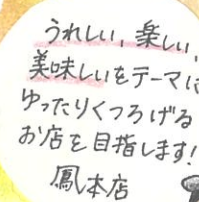 うれしい、楽しい、
美味しいをテーマに
ゆったりくつろげる
お店を目指します!
鳳本店